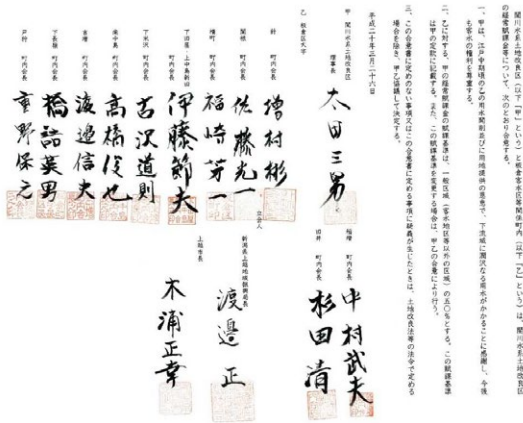 関川水系土地改良区(以下「甲」という)と板倉客水区等関係町内(以下「乙」という)は、関川水系土地改良区
の経常賦課金等について、次のとおり合意する。
一、甲は、江戸中期頃の乙の用水開削並びに用地提供の恩恵で、下流域に潤沢なる用水がかかることに感謝し、今後
も客水の権利を尊重する。
二、乙に対する、甲の経常賦課金の賦課基準は、一般区域(客水地区等以外の区域)の五〇%とする。この賦課基準
は甲の定款に記載する。また、この賦課基準を変更する場合は、甲乙の合意により行う。
三、この合意書に定めのない事項又はこの合意書に定める事項に疑義が生じたときは、土地改良法等の法令で定める
場合を除き、甲乙協議して決定する。
平成二十年三月二十六日
甲 関川水系土地改良区
理事長 太田三男
乙 板倉区大字
針 町内会長 増村彬
関根 町内会長 佐藤光一
横町 町内会長 福崎芳一
下田屋・上中島新田 町内会長 伊藤節夫
下米沢 町内会長 古沢道則
浦中島 町内会長 高橋俊也
吉増 町内会長 渡邉信夫
下長嶺 町内会長 橋詰英男
戸狩 町内会長 重野保元
稲増 町内会長 中村武夫
田井 町内会長 杉田清
立会人
新潟県上越地域振興局長 渡邉正
上越市長 木浦正幸